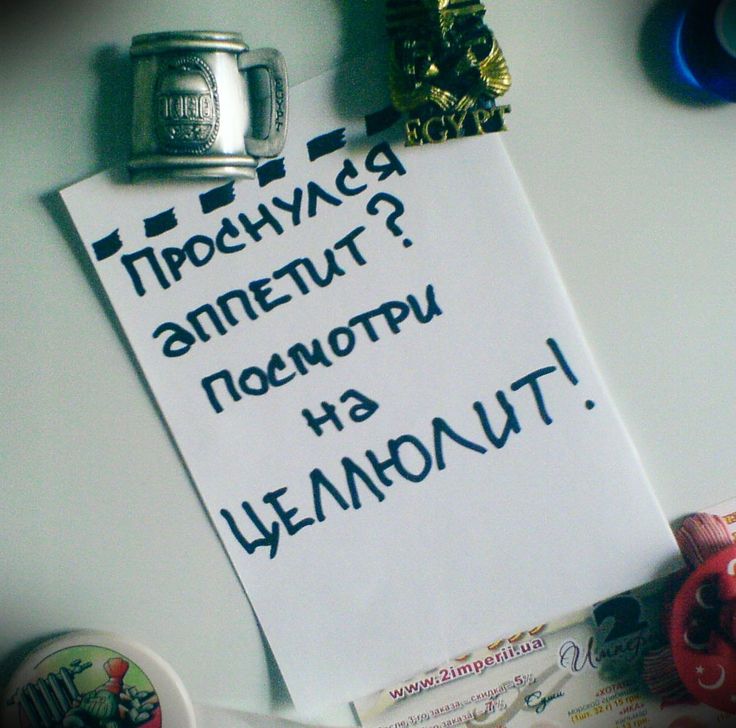 EGYPT
Проснулся
аппетит?
посмотри
на
ЦЕЛЛЮЛИТ!
www.2imperii.ua
2
Суши
скидка - 5%